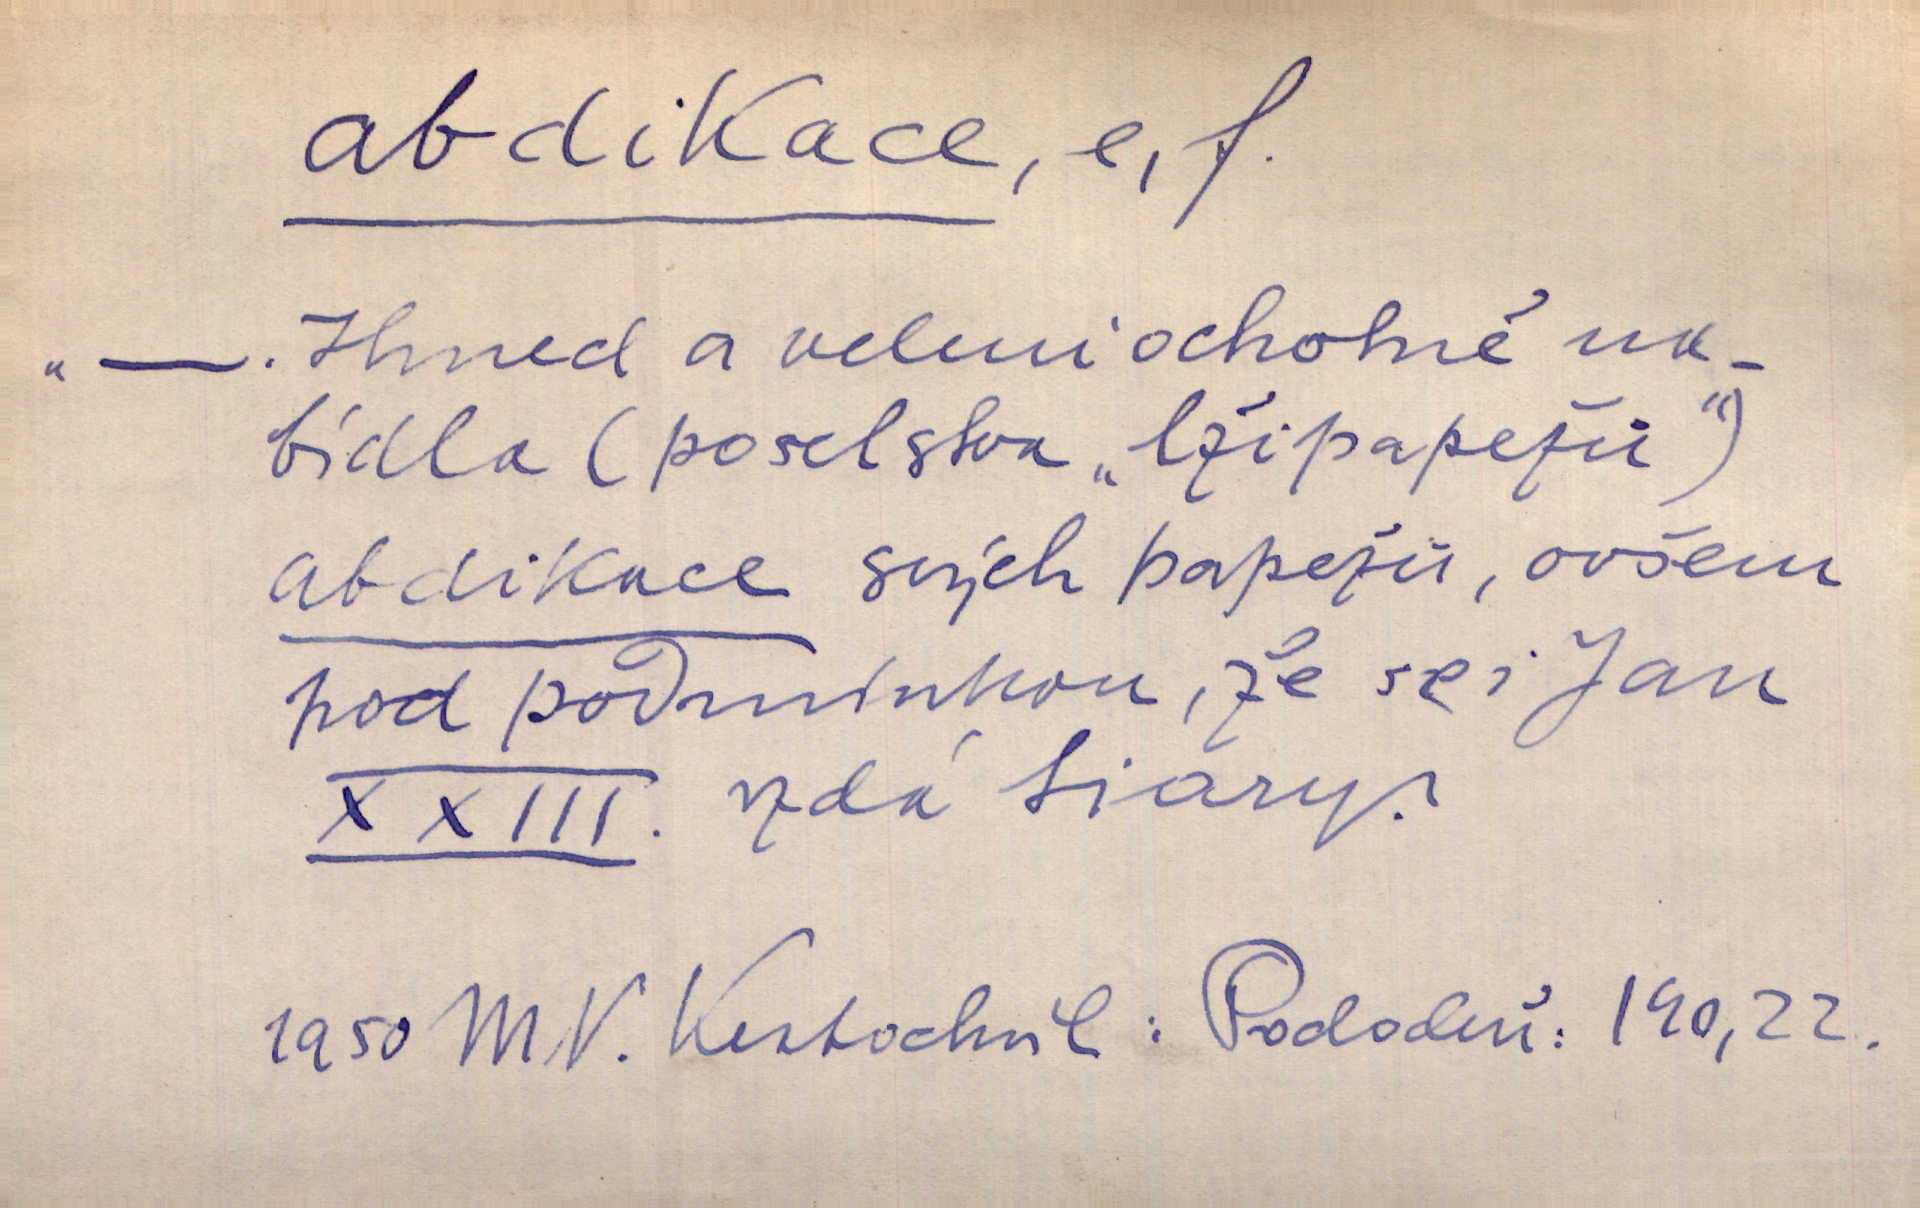 abdikace, e, f.
„—. Ihned a velmi ochotně na-
bídla (poselstva „lžipapežů“)
abdikace svých papežů, ovšem
pod podmínkou, že se i Jan
XXIII. vzdá tiary.
1950 M.V. Kratochvíl : : 190,22.